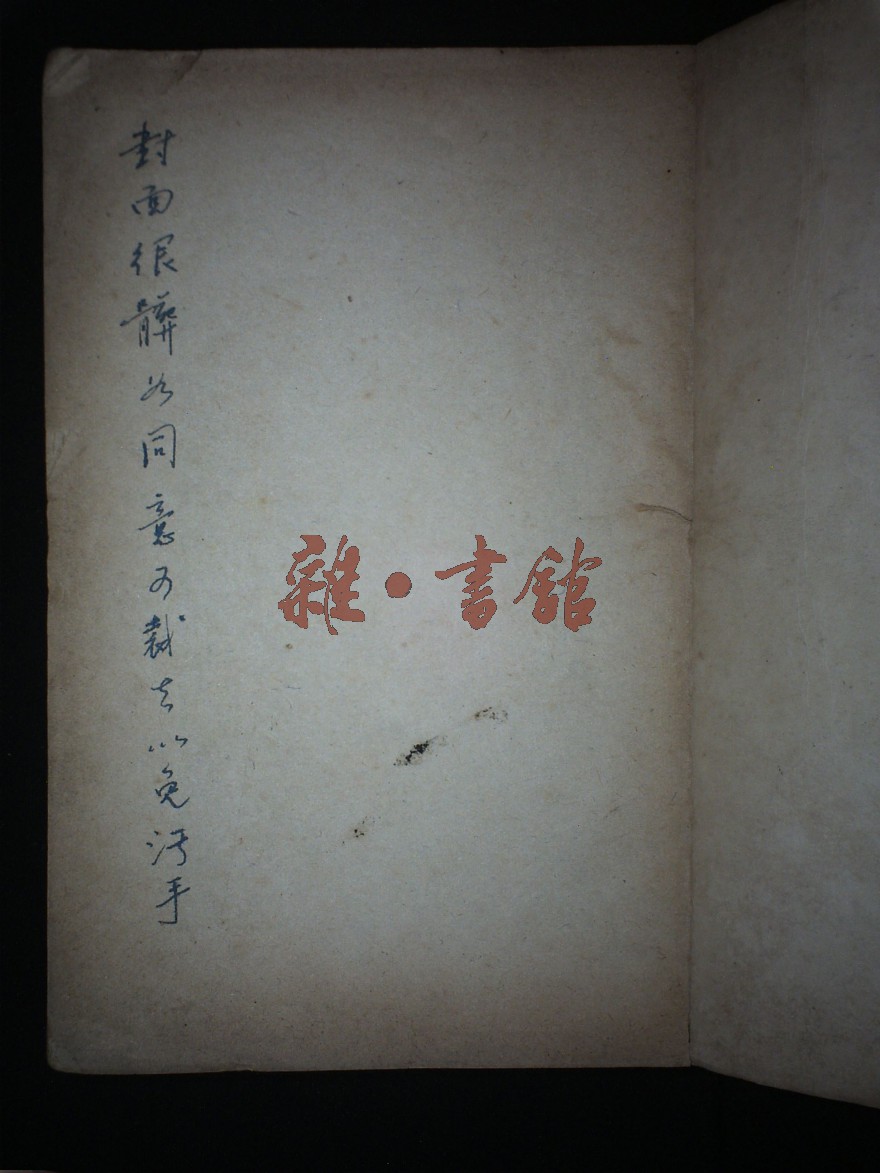 封面很髒如同意可裁去以免污手
雜·書館